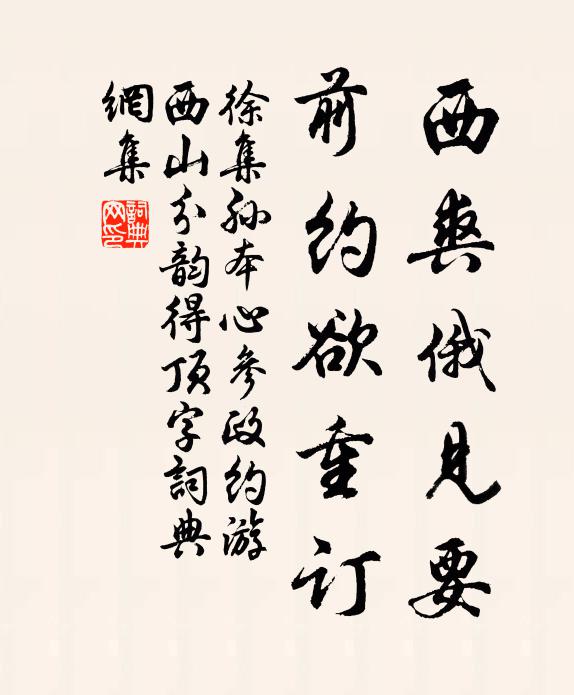 西爽俄见要
前约欲重订
徐集孙本心参政约游
西山分韵得顶字词典
网集
詞典
网印